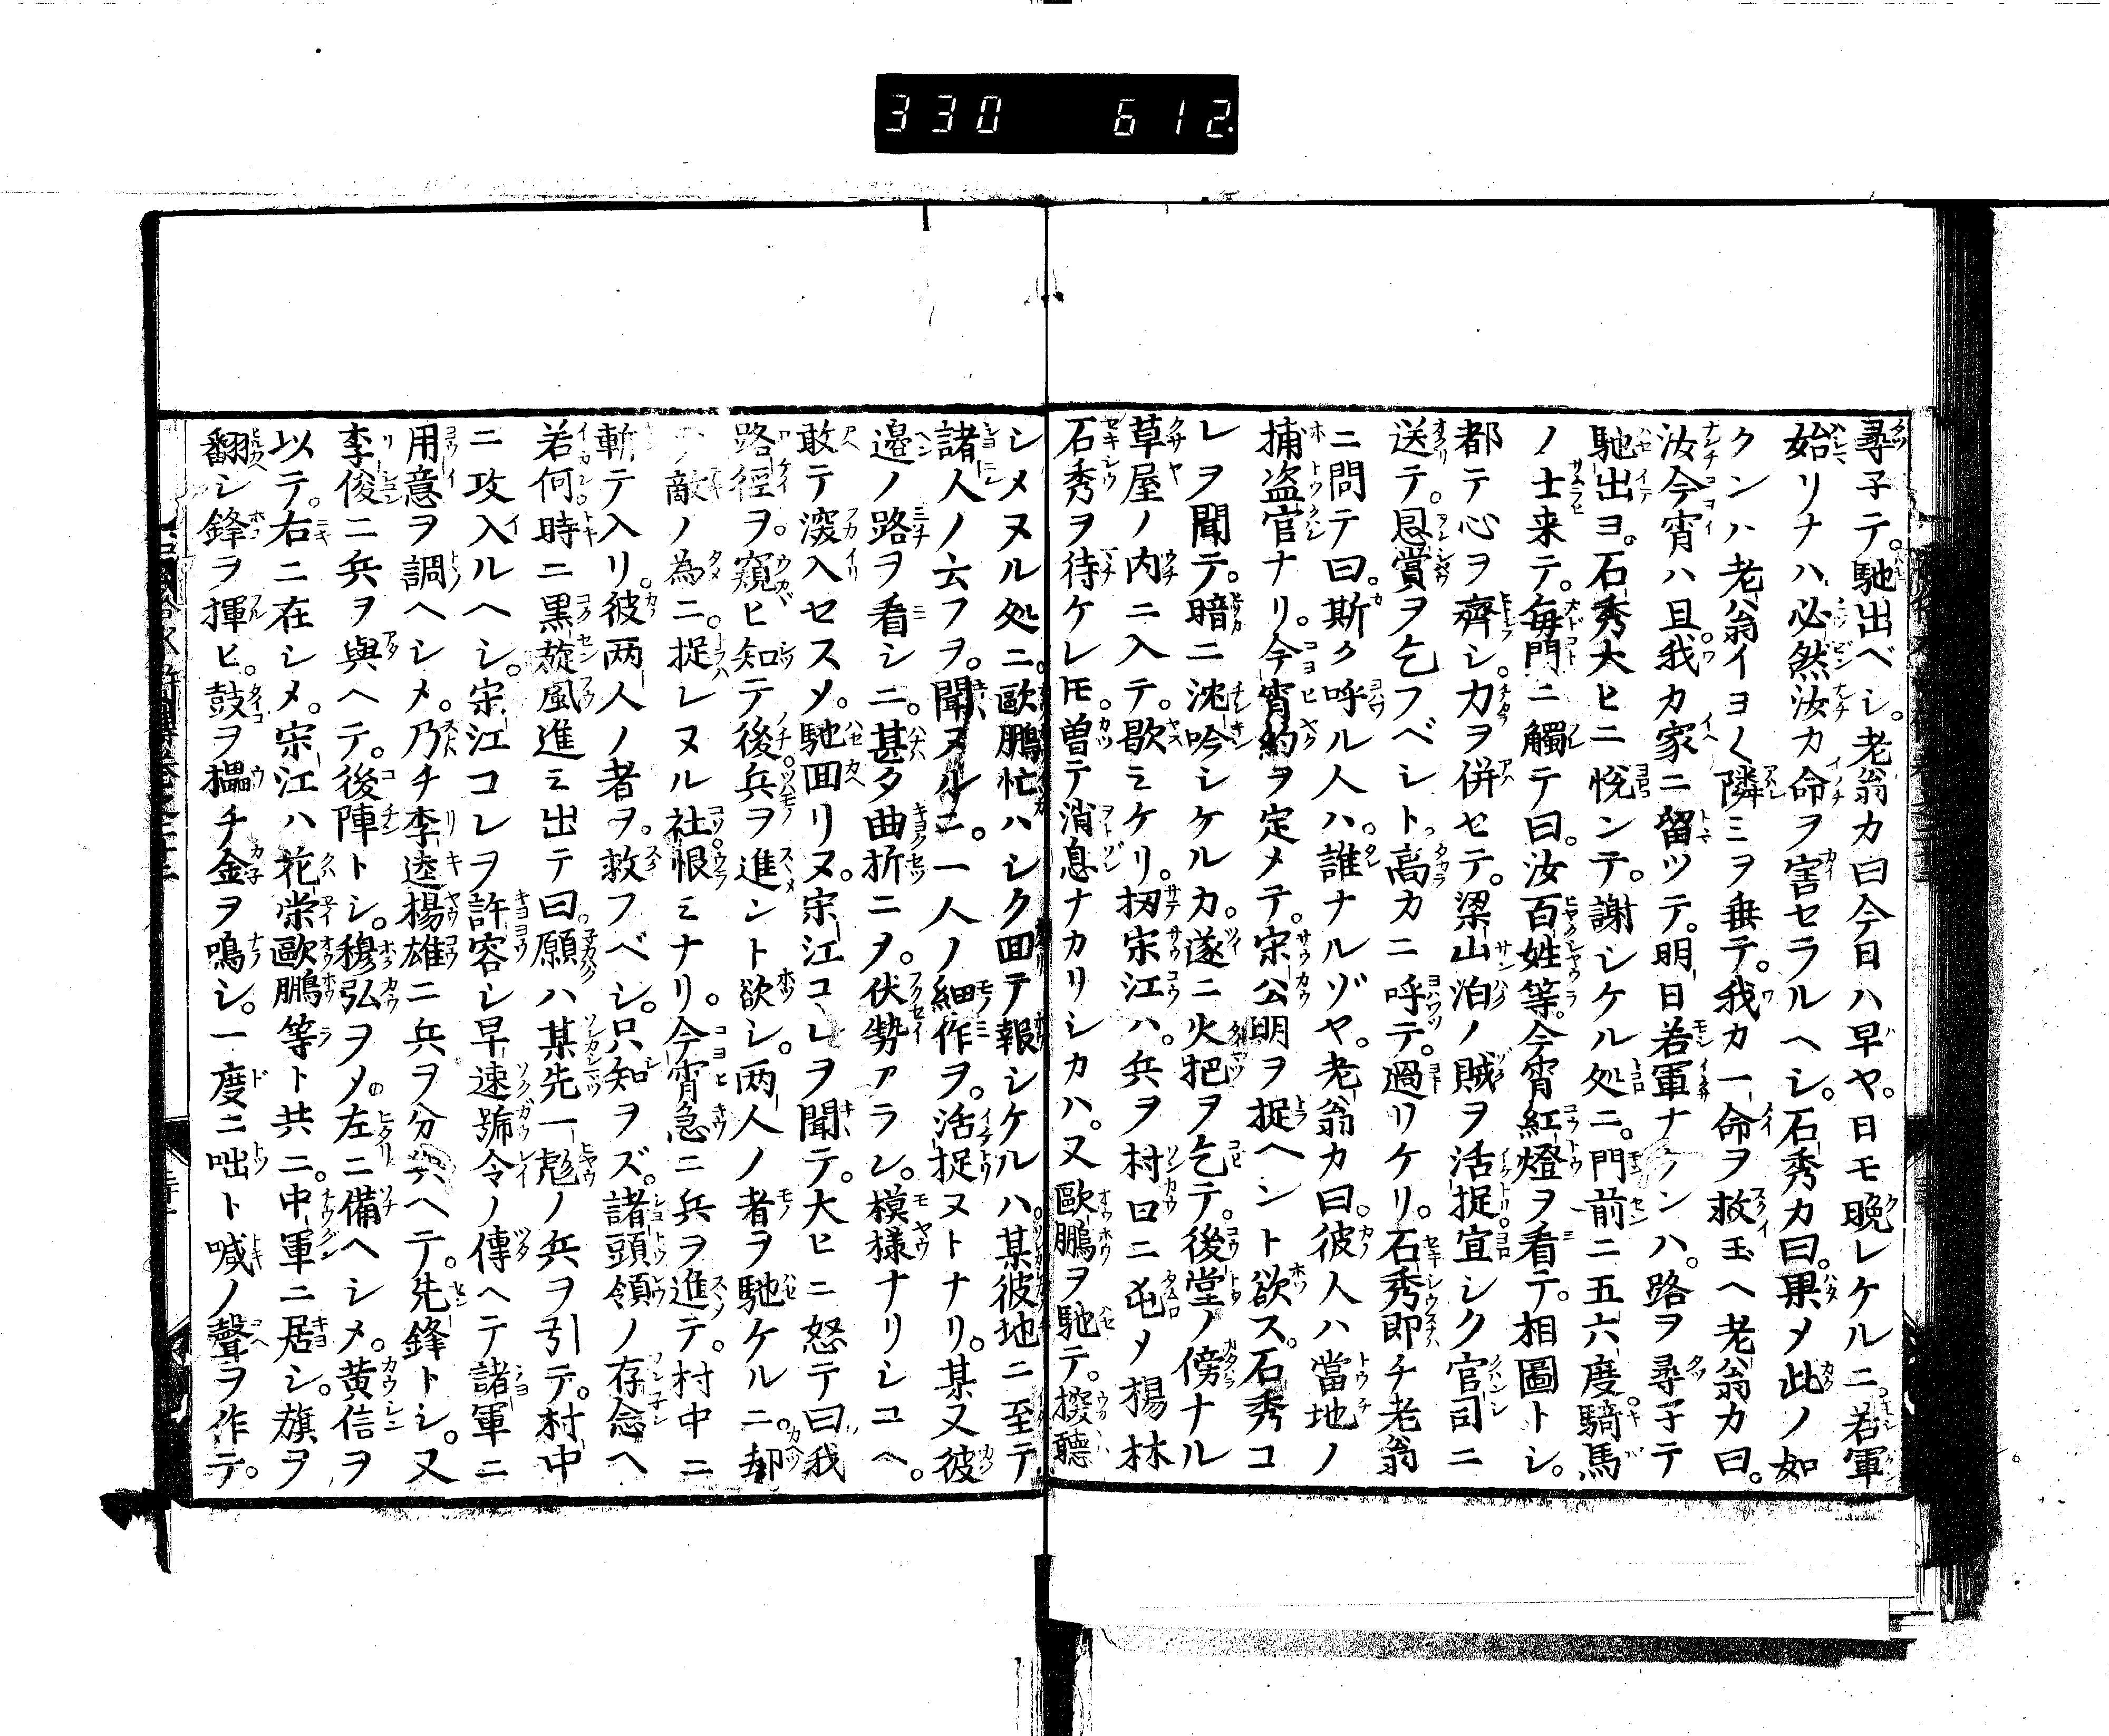 330 612.
尋子テ。馳出ベシ。老翁カ曰今日ハ早ヤ。日モ晩レケルニ。若軍
始リナハ必然汝カ命ヲ害セラルヘシ。石秀カ曰。果メ此ノ如
クンハ老翁イヨ〱隣ミヲ垂テ。我カ一命ヲ救玉ヘ老翁カ曰。
汝今宵ハ且我カ家ニ留ツテ。明日若軍ナクンハ。路ヲ尋子テ
馳出ヨ。石秀大ヒニ悦ンテ。謝シケル処ニ。門前ニ五六度騎馬
ノ士来テ。毎門ニ觸テ曰。汝百姓等。今宵紅燈ヲ看テ。相圖トシ。
都テ心ヲ齊シ。力ヲ併セテ。梁山泊ノ賊ヲ活捉宜シク官司ニ
送テ。恩賞ヲ乞フベシト高カニ呼テ。過リケリ。石秀即チ老翁
ニ問テ曰。斯ク呼ル人ハ。誰ナルゾヤ。老翁カ曰。彼人ハ當地ノ
捕盗官ナリ。今宵約ヲ定メテ。宋公明ヲ捉ヘント欲ス。石秀コ
レヲ聞テ。暗ニ沈吟シケルカ。遂ニ火把ヲ乞テ。後堂ノ傍ナル
草屋ノ内ニ入テ。歇ミケリ。扨宋江ハ。兵ヲ村口ニ屯メ楊林
石秀ヲ待ケレ𪜈。曽テ消息ナカリシカハ。又歐鵬ヲ馳テ。探聽
シメヌル処ニ。歐鵬忙ハシク回テ報シケルハ。某彼地ニ至テ
諸人ノ云フヲ。聞ヌルニ。一人ノ細作ヲ。活捉ヌトナリ。某又彼
邉ノ路ヲ看シニ。甚タ曲折ニメ。伏勢アラン。模様ナリシユヘ。
敢テ深入セスメ。馳回リヌ。宋江コレヲ聞テ。大ヒニ怒テ曰我
路徑ヲ。窺ヒ知テ後。兵ヲ進ント欲シ。两人ノ者ヲ馳ケルニ。却
敵ノ為ニ。捉レヌル社恨ミナリ。今宵急ニ兵ヲ進テ。村中ニ
斬テ入リ。彼两人ノ者ヲ。救フベシ。只知ヲズ。諸頭領ノ存念ヘ
若何時ニ黒旋風進ミ出テ曰。願ハ某先一彪ノ兵ヲ引テ。村中
ニ攻入ルヘシ。宋江コレヲ許容シ早速號令ノ傳ヘテ諸軍ニ
用意ヲ調ヘシメ。乃チ李逵楊雄ニ兵ヲ分與ヘテ。先鋒トシ。又
李俊ニ兵ヲ與ヘテ。後陣トシ。穆弘ヲメ左ニ備ヘシメ。黄信ヲ
以テ。右ニ在シメ。宋江ハ花栄歐鵬等ト共ニ。中軍ニ居シ。旗ヲ
翻シ鋒ヲ揮ヒ。鼓ヲ擂チ金ヲ鳴シ。一度ニ咄ト喊ノ聲ヲ作テ。